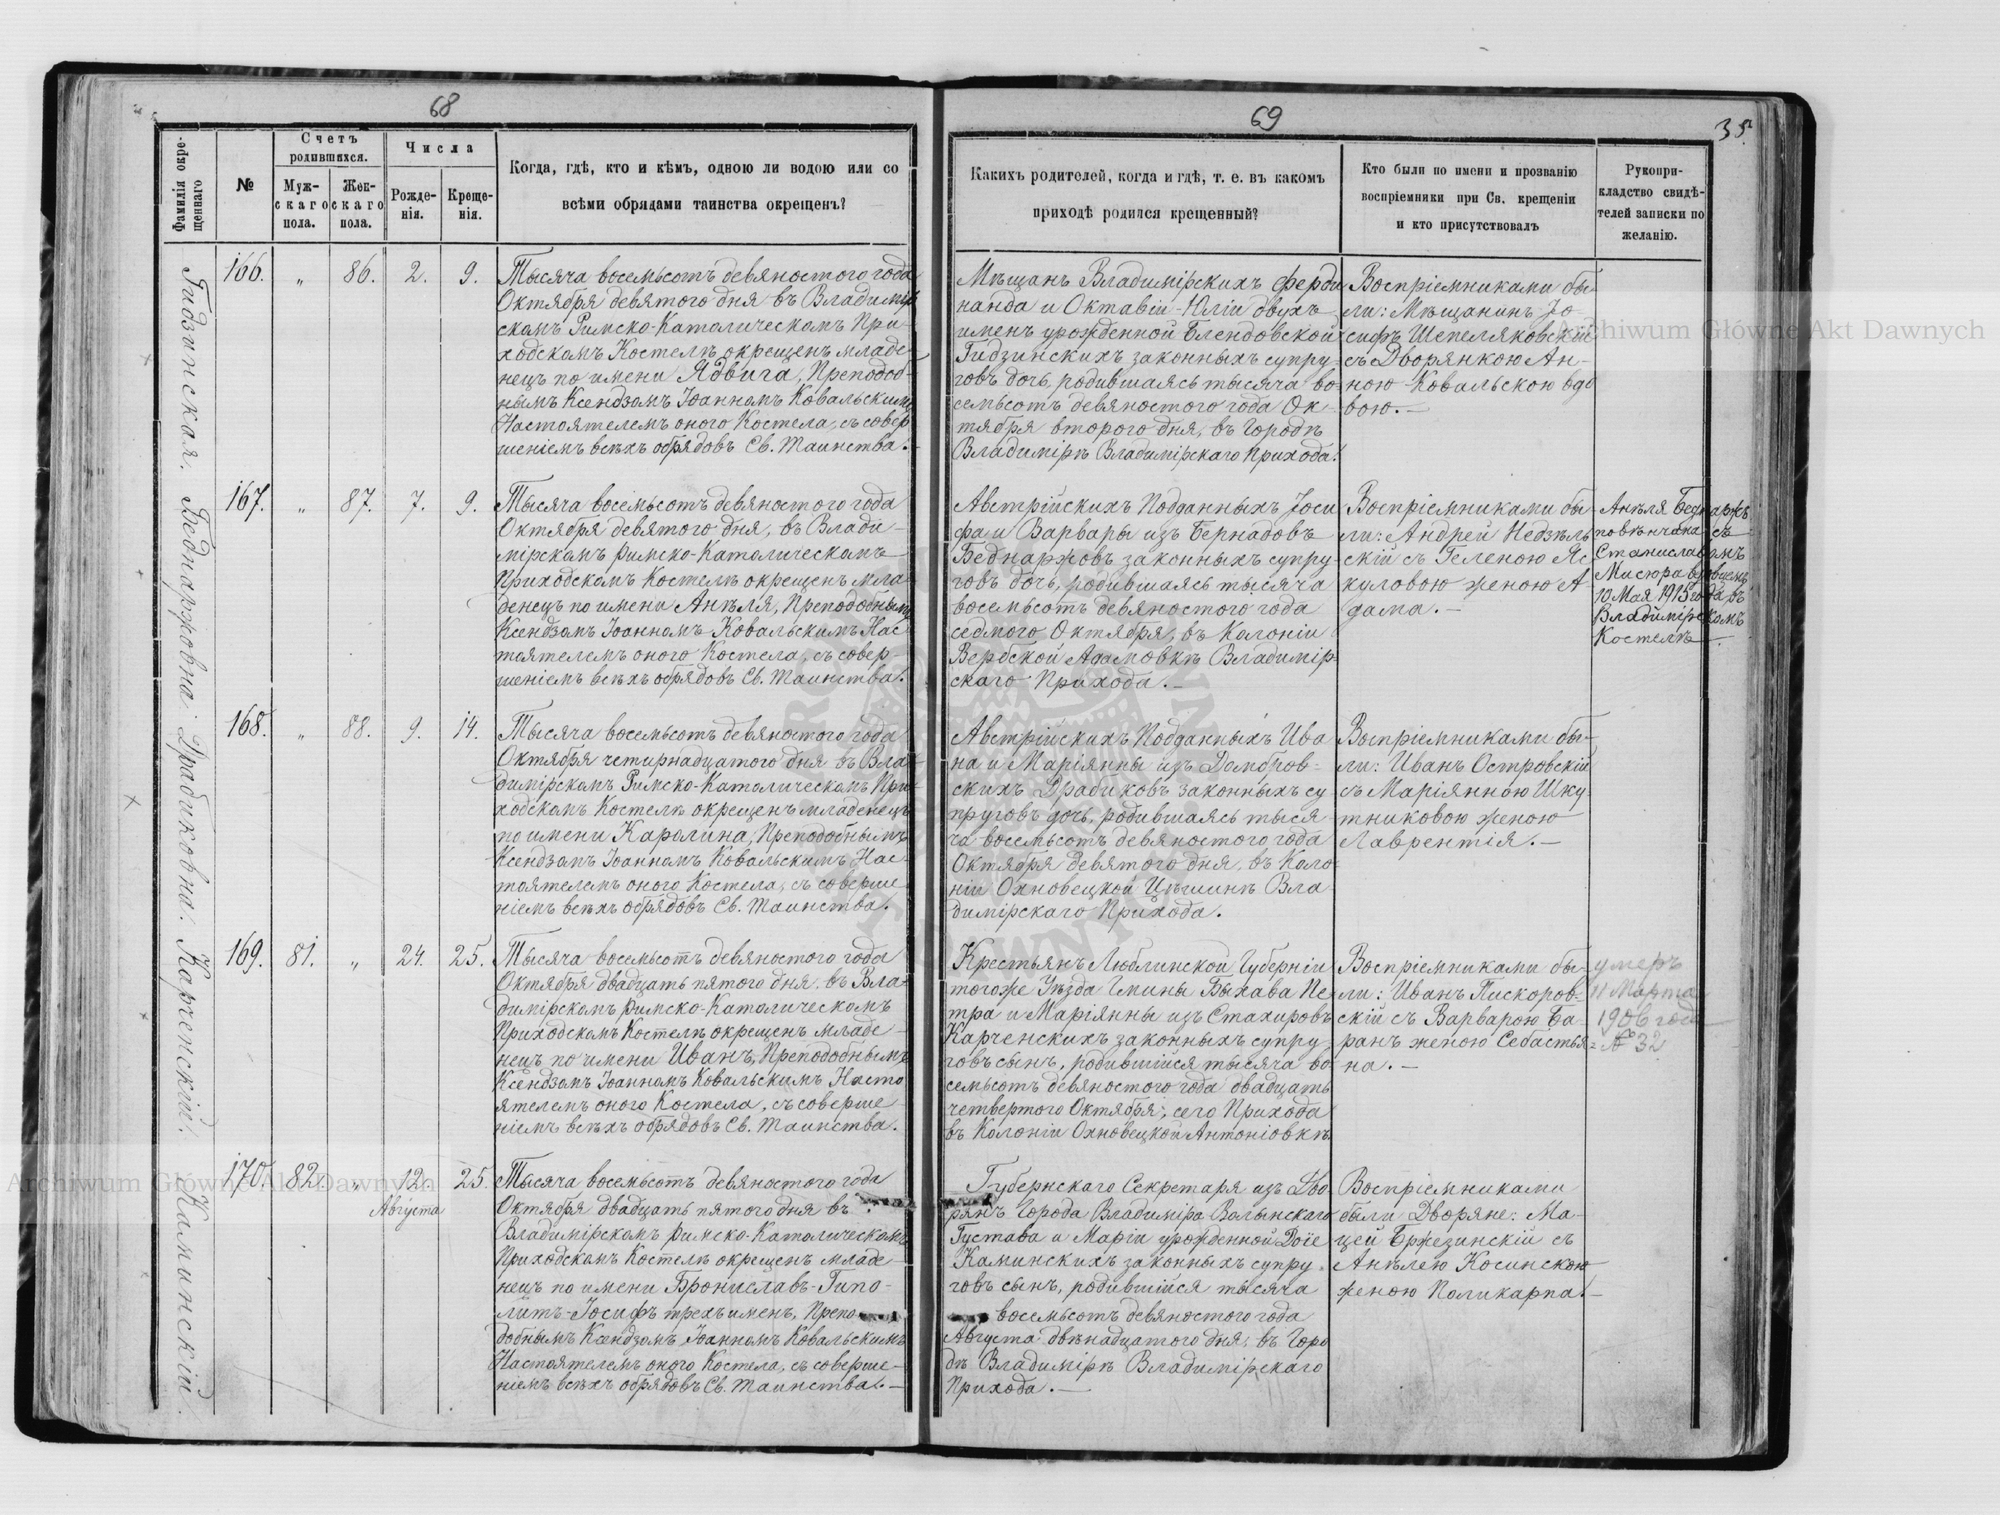 68
Фамилія окре-
щеннаго
№
Счетъ
родившихся.
Муж-
скаго
пола.
Жен-
скаго
пола.
Числа
Рожде-
нія.
Креще-
нія.
Когда, гдѣ, кто и кѣмъ, одною ли водою или со
всѣми обрядами таинства окрещенъ?
Гидзинская.
166. „ 86. 2. 9.
Тысяча восемьсотъ девяностого года
Октября девятого дня въ Владимір
скомъ Римско-Католическомъ При-
ходскомъ Костелѣ окрещенъ младе-
нецъ по имени Ядвига, Преподоб-
нымъ Ксендзомъ Іоанномъ Ковальскимъ
Настоятелемъ оного Костела, съ совер
шеніемъ всѣхъ обрядовъ Св. Таинства.
Беднаржовна.
167. „ 87. 7. 9.
Тысяча восемьсотъ девяностого года
Октября девятого дня, въ Влади-
мірскомъ Римско-Католическомъ
Приходскомъ Костелѣ окрещенъ мла-
денецъ по имени Анѣля, Преподобнымъ
Ксендзомъ Іоанномъ Ковальскимъ Нас-
тоятелемъ оного Костела, съ совер-
шеніемъ всѣхъ обрядовъ Св. Таинства.
Драбиковна.
168. „ 88. 9. 14.
Тысяча восемьсотъ девяностого года
Октября четирнадцатого дня въ Вла-
димірскомъ Римско-Католическомъ При-
ходскомъ Костелѣ окрещенъ младенецъ
по имени Каролина, Преподобнымъ
Ксендзомъ Іоанномъ Ковальскимъ Нас-
тоятелемъ оного Костела, съ соверше-
ніемъ всѣхъ обрядовъ Св. Таинства.
Карченскій.
169. 81. „ 24. 25.
Тысяча восемьсотъ девяностого года
Октября двадцать пятого дня въ Вла-
димірскомъ Римско-Католическомъ
Приходскомъ Костелѣ окрещенъ младе-
нецъ по имени Иванъ, Преподобнымъ
Ксендзомъ Іоанномъ Ковальскимъ Насто
ятелемъ оного Костела, съ соверше-
ніемъ всѣхъ обрядовъ Св. Таинства.
Каминскій.
170. 82. „ 12. 25.
Августа
Тысяча восемьсотъ девяностого года
Октября двадцать пятого дня въ
Владимірскомъ Римско-Католическомъ
Приходскомъ Костелѣ окрещенъ младе-
нецъ по имени Брониславъ-Гипо-
литъ-Іосифъ трехъ именъ, Препо-
добнымъ Ксендзомъ Іоанномъ Ковальскимъ
Настоятелемъ оного Костела, съ соверше-
ніемъ всѣхъ обрядовъ Св. Таинства.—
69
35.
Какихъ родителей, когда и гдѣ, т. е. въ какомъ
приходѣ родился крещенный?
Кто были по имени и прозванію
воспріемники при Св. крещеніи
и кто присутствовалъ
Рукопри-
кладство свидѣ-
телей записки по
желанію.
Мѣщанъ Владимірскихъ Ферди
нанда и Октавіи-Юліи двухъ
именъ урожденной Блендовской
Гидзинскихъ законныхъ супру-
говъ дочь, родившаясь тысяча во-
семьсотъ девяностого года Ок-
тября второго дня, въ Городѣ
Владимірѣ Владимірскаго Прихода.
Воспріемниками бы-
ли: Мѣщанинъ Іо-
сифъ Шепеляковскій
съ Дворянкою Ан-
ною Ковальскою вдо
вою.—
Австрійскихъ Подданныхъ Іоси
фа и Варвары изъ Бернадовъ
Беднаржовъ законныхъ супру-
говъ дочь, родившаясь тысяча
восемьсотъ девяностого года
седмого Октября, въ Колоніи
Вербской Адамовкѣ Владимір-
скаго Прихода.—
Воспріемниками бы-
ли: Андрей Недзѣль
скій съ Геленою Яс
куловою женою А
дама.—
Анѣля Беднаржъ
повѣнчана съ
Станиславомъ
Мисюра вдовцемъ
10 Мая 1915 года въ
Владимірскомъ
Костелѣ
Австрійскихъ Подданныхъ Ива
на и Маріянны изъ Домбров-
скихъ Драбиковъ законныхъ су
пруговъ дочь, родившаясь тыся
ча восемьсотъ девяностого года
Октября девятого дня, въ Коло-
ніи Охновецкой Цѣшинѣ Вла-
димірскаго Прихода.
Воспріемниками бы-
ли: Иванъ Островскій
съ Маріянною Шку
тниковою женою
Лаврентія.—
Крестьянъ Люблинской Губерніи
тогоже Уѣзда Гмины Быхава Пе-
тра и Маріянны изъ Стахировъ
Карченскихъ законныхъ супру-
говъ сынъ, родившійся тысяча во
семьсотъ девяностого года двадцать
четвертого Октября, сего Прихода
въ Колоніи Охновецкой Антоніовкѣ
Воспріемниками бы-
ли: Иванъ Пискоров-
скій съ Варварою Ба-
ранъ женою Себастья
на.—
умеръ
11 Марта
1906 года
№ 32
Губернскаго Секретаря изъ Дво
рянъ Города Владиміра Волынскаго
Густава и Маріи урожденной Дойе
Каминскихъ законныхъ супру-
говъ сынъ, родившійся тысяча
восемьсотъ девяностого года
Августа двѣнадцатого дня, въ Горо
дѣ Владимірѣ Владимірскаго
Прихода.—
Воспріемниками
были Дворяне: Ма-
цей Бржезинскій съ
Анѣлею Косинскою
женою Поликарпа.—
Archiwum Główne Akt Dawnych
Archiwum Główne Akt Dawnych